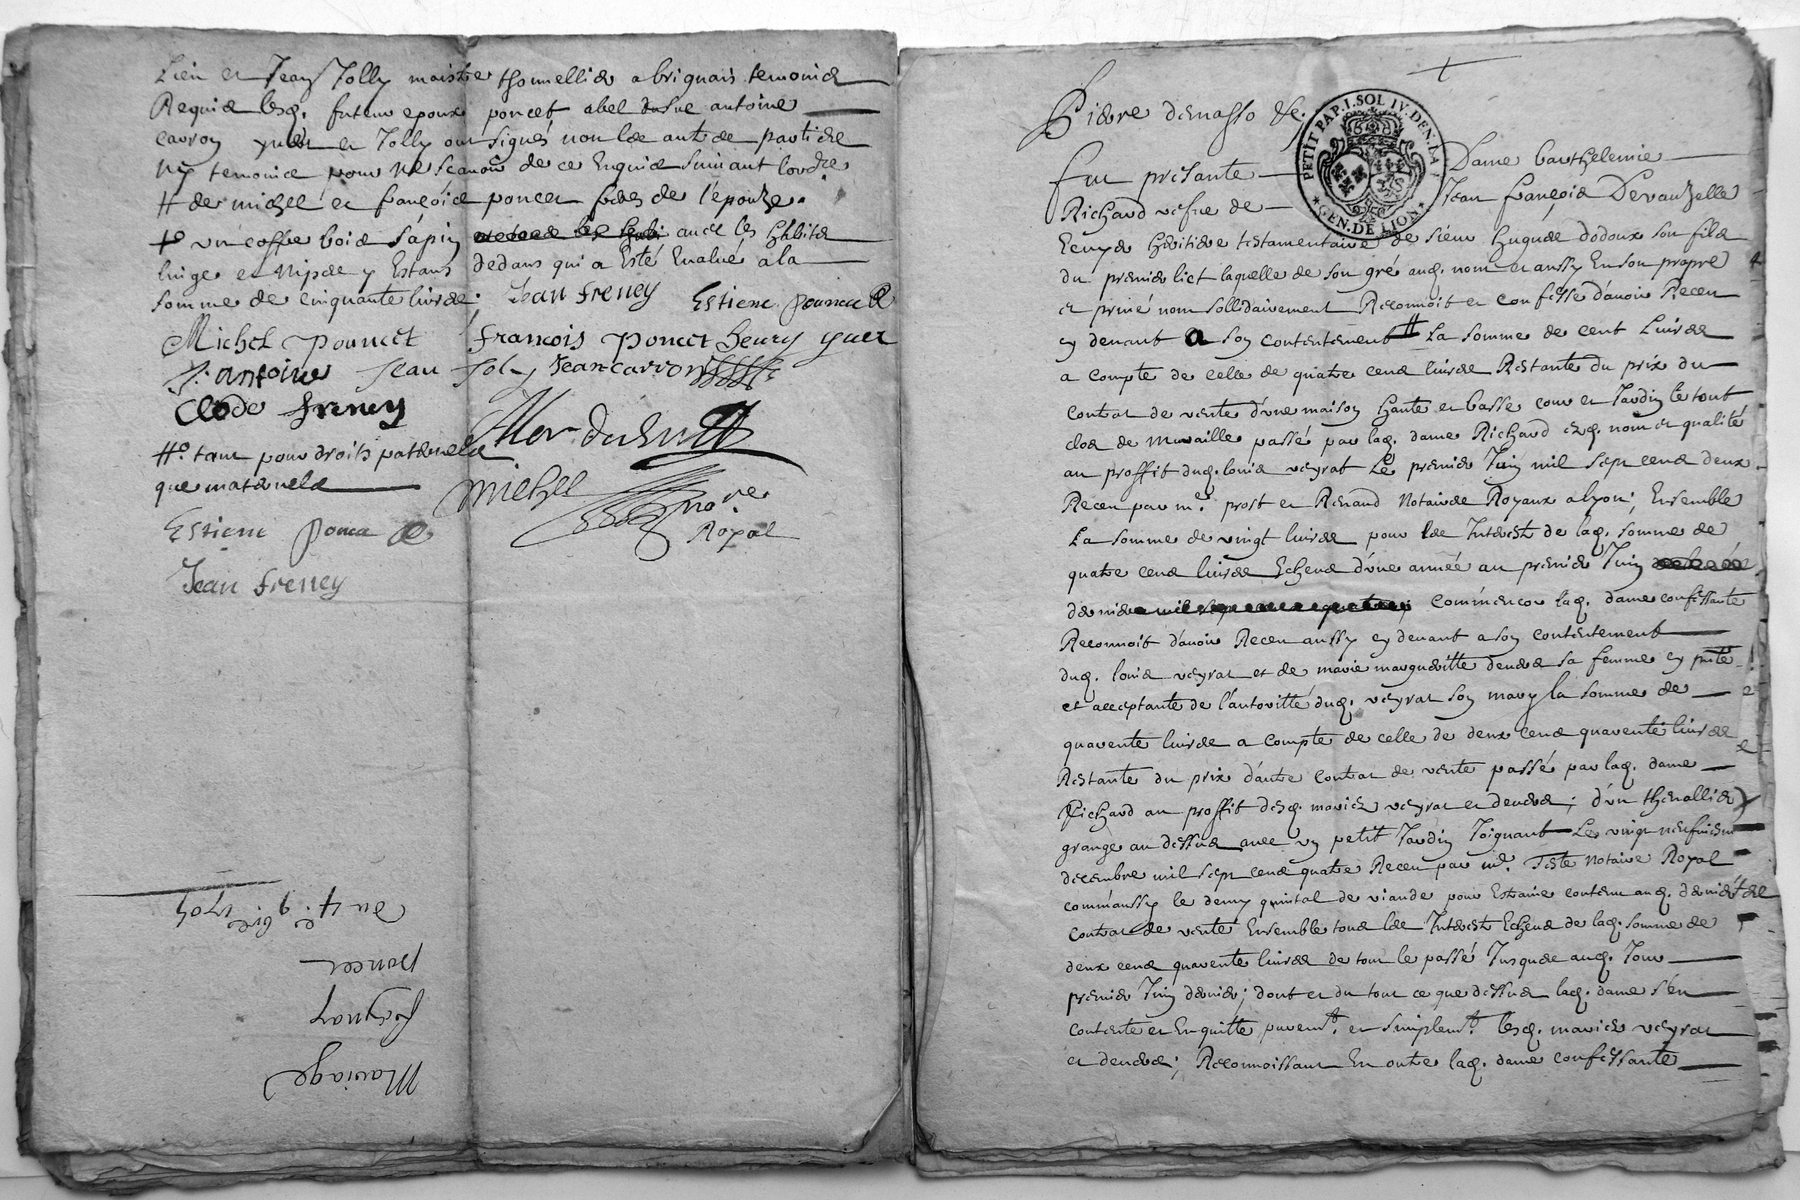 Lieu et Jean Jolly maistre thonnellier a brignais temoins
Requis lesq. futeur epoux poncet abel dusue antoine
carron yuer et Jolly ont signés non les autres parties
ny temoins pour ne scavoir de ce Enquis suivant lordre
# de michel et françois poncet freres de l'epouze.
+o un coffre bois sapin avec les habits
linge et Nipes y Estans dedans qui a Esté Evalué a la
somme de cinquante livres; Jean freney Estiene pouncet
Michel pouncet francois poncet henry yuer
antoine Jean Joly Jean carron
Clode freney
##o tant pour droits paternels
que maternels
michel no.re
Royal
Estiene ponce
Jean freney
Mariage
freynay
poncet
du 4.e 9bre 1705
Pierre demasso &c.
PETIT PAP. I. SOL IV. DEN. LA F. GEN. DE LION
fut presente Dame barthelemie
Richard vefve de Jean françois Devauzelle
Ecuyer heritiere testamentaire de sieur hugues dodoux son fils
du premier lict laquelle de son gré audq. nom et aussy En son propre
et privé nom sollidairement Reconnoit et confesse d'avoir Receu
cy devant a son contentement # La somme de cent Livres
a compte de celle de quatre cens livres Restante du prix du
contrat de vente d'une maison haute et basse cour et Jardin le tout
clos de muraille passé par laq. dame Richard esq. nom et qualité
au proffit dudq. louis veyrat Le premier Juin mil sept cens deux
Receu par m.e prost et Renaud Notaires Royaux a lyon; Ensemble
La somme de vingt livres pour les Interests de laq. somme de
quatre cens livres Echeus d'une année au premier Juin
dernier comm'encor laq. dame confessante
Reconnoit d'avoir Receu aussy cy devant a son contentement
dudq. louis veyrat et de marie margueritte deudes sa femme cy pnte
et acceptante de l'autorité dudq. veyrat son mary la somme de
quarente livres a compte de celle de deux cens quarente livres
Restante du prix d'autre contrat de vente passé par laq. dame
Richard au proffit desq. mariez veyrat et deudes; d'un thenallier
grange au dessus avec un petit Jardin Joignant Le vingt neufviesme
decembre mil sept cens quatre Receu par me. Teste Notaire Royal
comm'aussy le demy quintal de viande pour Estraine contenu audq. dernier
contrat de vente Ensemble tous les Interests Echeus de laq. somme de
deux cens quarente livres de tout le passé Jusques audq. Jour
premier Juin dernier; dont et du tout ce que dessus laq. dame s'en
contente et En quitte purem.t et simplem.t lesq. mariez veyrat
et deudes; Reconnoissant En outre laq. dame confessante